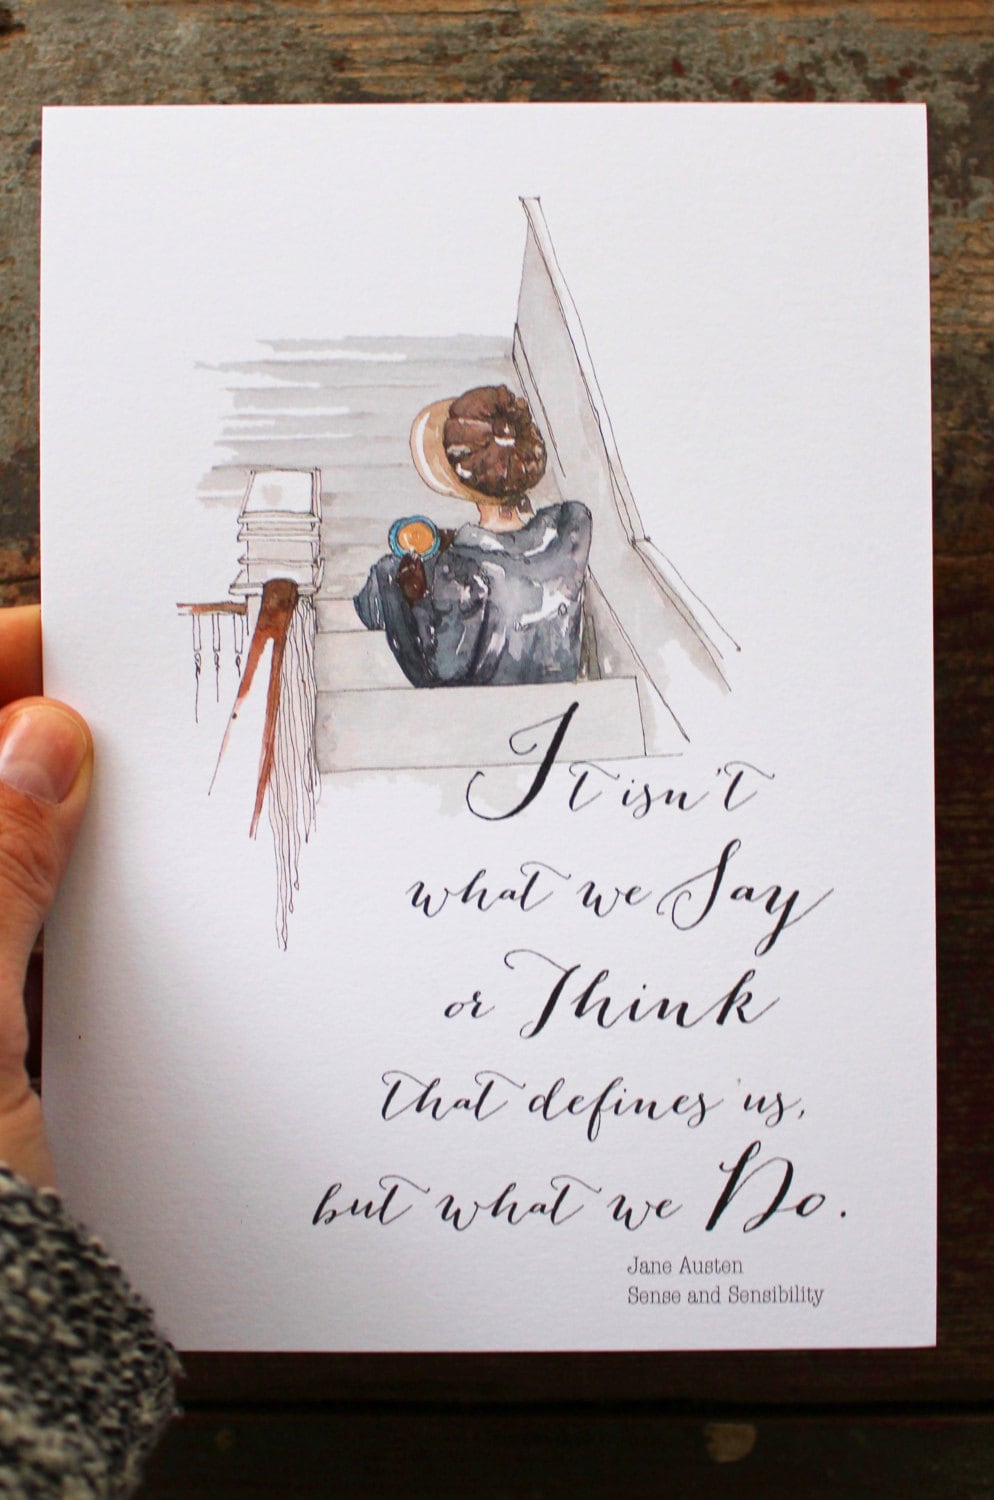 It isn't
what we Say
or Think
that defines us,
but what we Do.
Jane Austen
Sense and Sensibility